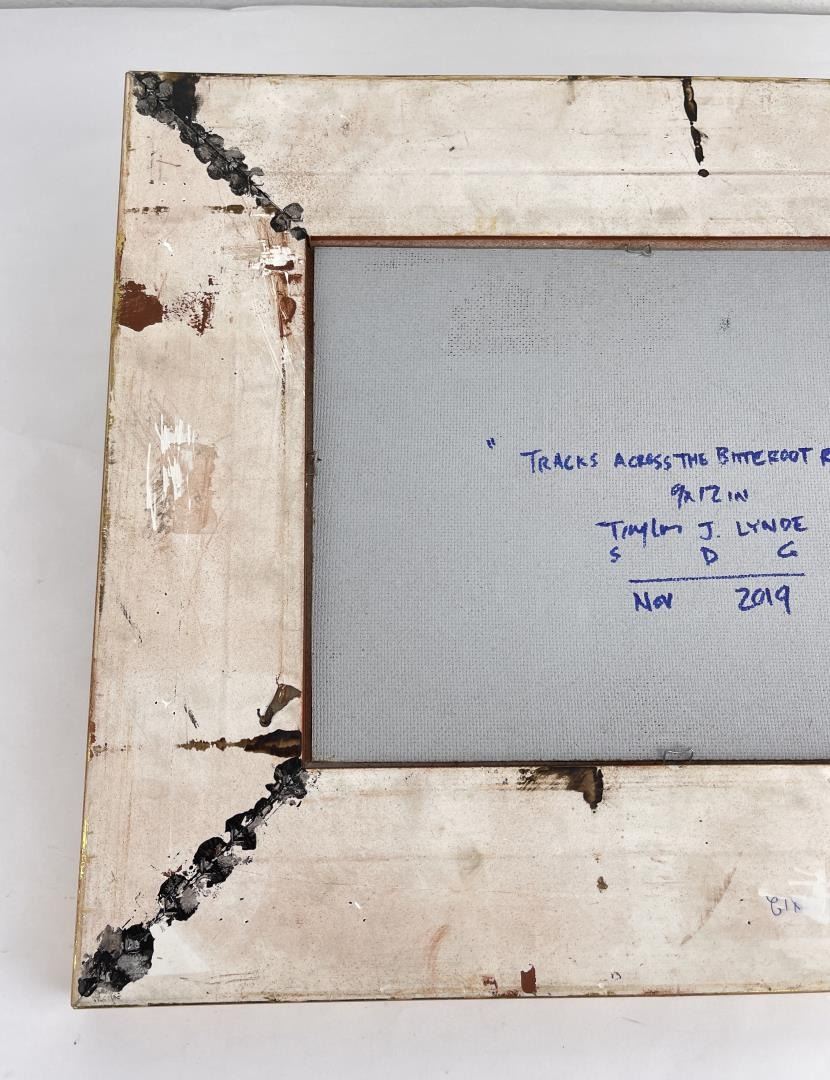 " TRACKS ACROSS THE BITTEROOT R
9x12 IN
Taylor J. LYNDE
S D G
Nov 2019